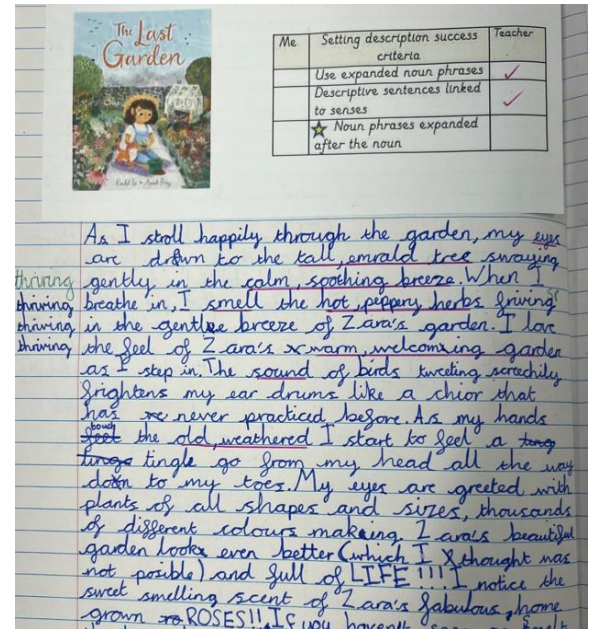 The Last
Garden
Me Setting description success criteria Teacher
Use expanded noun phrases ✓
Descriptive sentences linked
to senses ✓
Noun phrases expanded
after the noun
As I stroll happily through the garden, my eyes
are drawn to the tall, emrald tree swaying
thriving gently in the calm, soothing breeze. When I
thriving breathe in, I smell the hot, peppery herbs friving
thriving in the gentle breeze of Zara's garden. I love
thriving the feel of Zara's warm, welcoming garden
as I step in. The sound of birds tweeting screechily
frightens my ear drums like a chior that
has never practiced before. As my hands
touch the old, weathered I start to feel a
tingle go from my head all the way
down to my toes. My eyes are greeted with
plants of all shapes and sizes, thousands
of different colours making Zara's beautiful
garden look even better (which I thought was
not posible) and full of LIFE!!! I notice the
sweet smelling scent of Zara's fabulous, home
grown ROSES!!. If you haven't